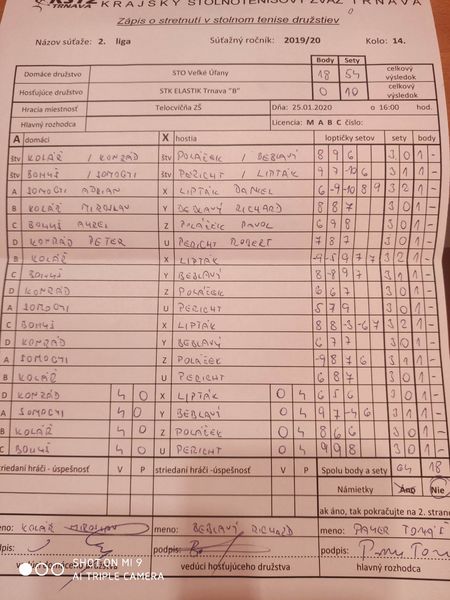 KRAJSKÝ STOLNOTENISOVÝ ZVÄZ TRNAVA
TRNAVA
Zápis o stretnutí v stolnom tenise družstiev
Názov súťaže: 2. liga Súťažný ročník: 2019/20 Kolo: 14.
Body Sety
Domáce družstvo STO Veľké Úľany 18 54 celkový výsledok
Hosťujúce družstvo STK ELASTIK Trnava "B" 0 10 celkový výsledok
Hracia miestnosť Telocvičňa ZŠ Dňa: 25.01.2020 o 16:00 hod.
Hlavný rozhodca Licencia: M A B C číslo:
A domáci X hostia loptičky setov sety body
štv KOLÁŘ / KONRÁD štv POLÁČEK / BEBLAVÝ 8 9 6 3 0 1 -
štv BOHUŠ / SOMOGYI štv PERICHT / LIPTÁK 9 7 -10 6 3 1 1 -
A SOMOGYI ADRIAN X LIPTÁK DANIEL 6 -9 -10 8 9 3 2 1 -
B KOLÁŘ MIROSLAV Y BEBLAVÝ RICHARD 8 8 7 3 0 1 -
C BOHUŠ Z POLÁČEK PAVOL 6 9 8 3 0 1 -
D KONRÁD PETER U PERICHT ROBERT 7 8 7 3 0 1 -
B KOLÁŘ X LIPTÁK -9 -5 9 7 7 3 2 1 -
C BOHUŠ Y BEBLAVÝ 8 -8 9 7 3 1 1 -
D KONRÁD Z POLÁČEK 6 6 7 3 0 1 -
A SOMOGYI U PERICHT 5 7 9 3 0 1 -
C BOHUŠ X LIPTÁK 8 8 -3 -6 7 3 2 1 -
D KONRÁD Y BEBLAVÝ 6 7 7 3 0 1 -
A SOMOGYI Z POLÁČEK -9 8 7 6 3 1 1 -
B KOLÁŘ U PERICHT 6 8 7 3 0 1 -
D KONRÁD 4 0 X LIPTÁK 0 4 6 5 6 3 0 1 -
A SOMOGYI 4 0 Y BEBLAVÝ 0 4 9 7 -4 6 3 1 1 -
B KOLÁŘ 4 0 Z POLÁČEK 0 4 8 6 6 3 0 1 -
C BOHUŠ 4 0 U PERICHT 0 4 9 9 8 3 0 1 -
striedaní hráči - úspešnosť V P striedaní hráči - úspešnosť V P Spolu body a sety 64 18
Námietky Áno Nie
ak áno, tak pokračujte na 2. strane
meno: KOLÁŘ MIROSLAV meno: BEBLAVÝ RICHARD meno:
podpis: podpis: podpis:
vedúci hosťujúceho družstva hlavný rozhodca
SHOT ON MI 9
AI TRIPLE CAMERA